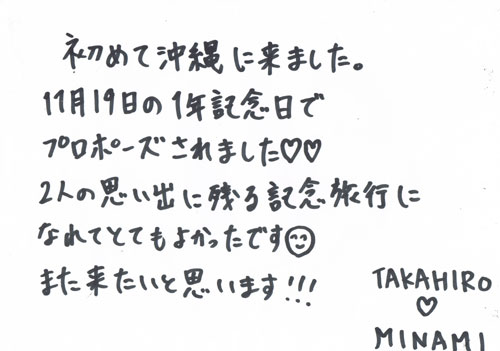 初めて沖縄に来ました。
11月19日の1年記念日で
プロポーズされました♡♡
2人の思い出に残る記念旅行に
なれてとてもよかったです☺
また来たいと思います!!!
TAKAHIRO
♡
MINAMI